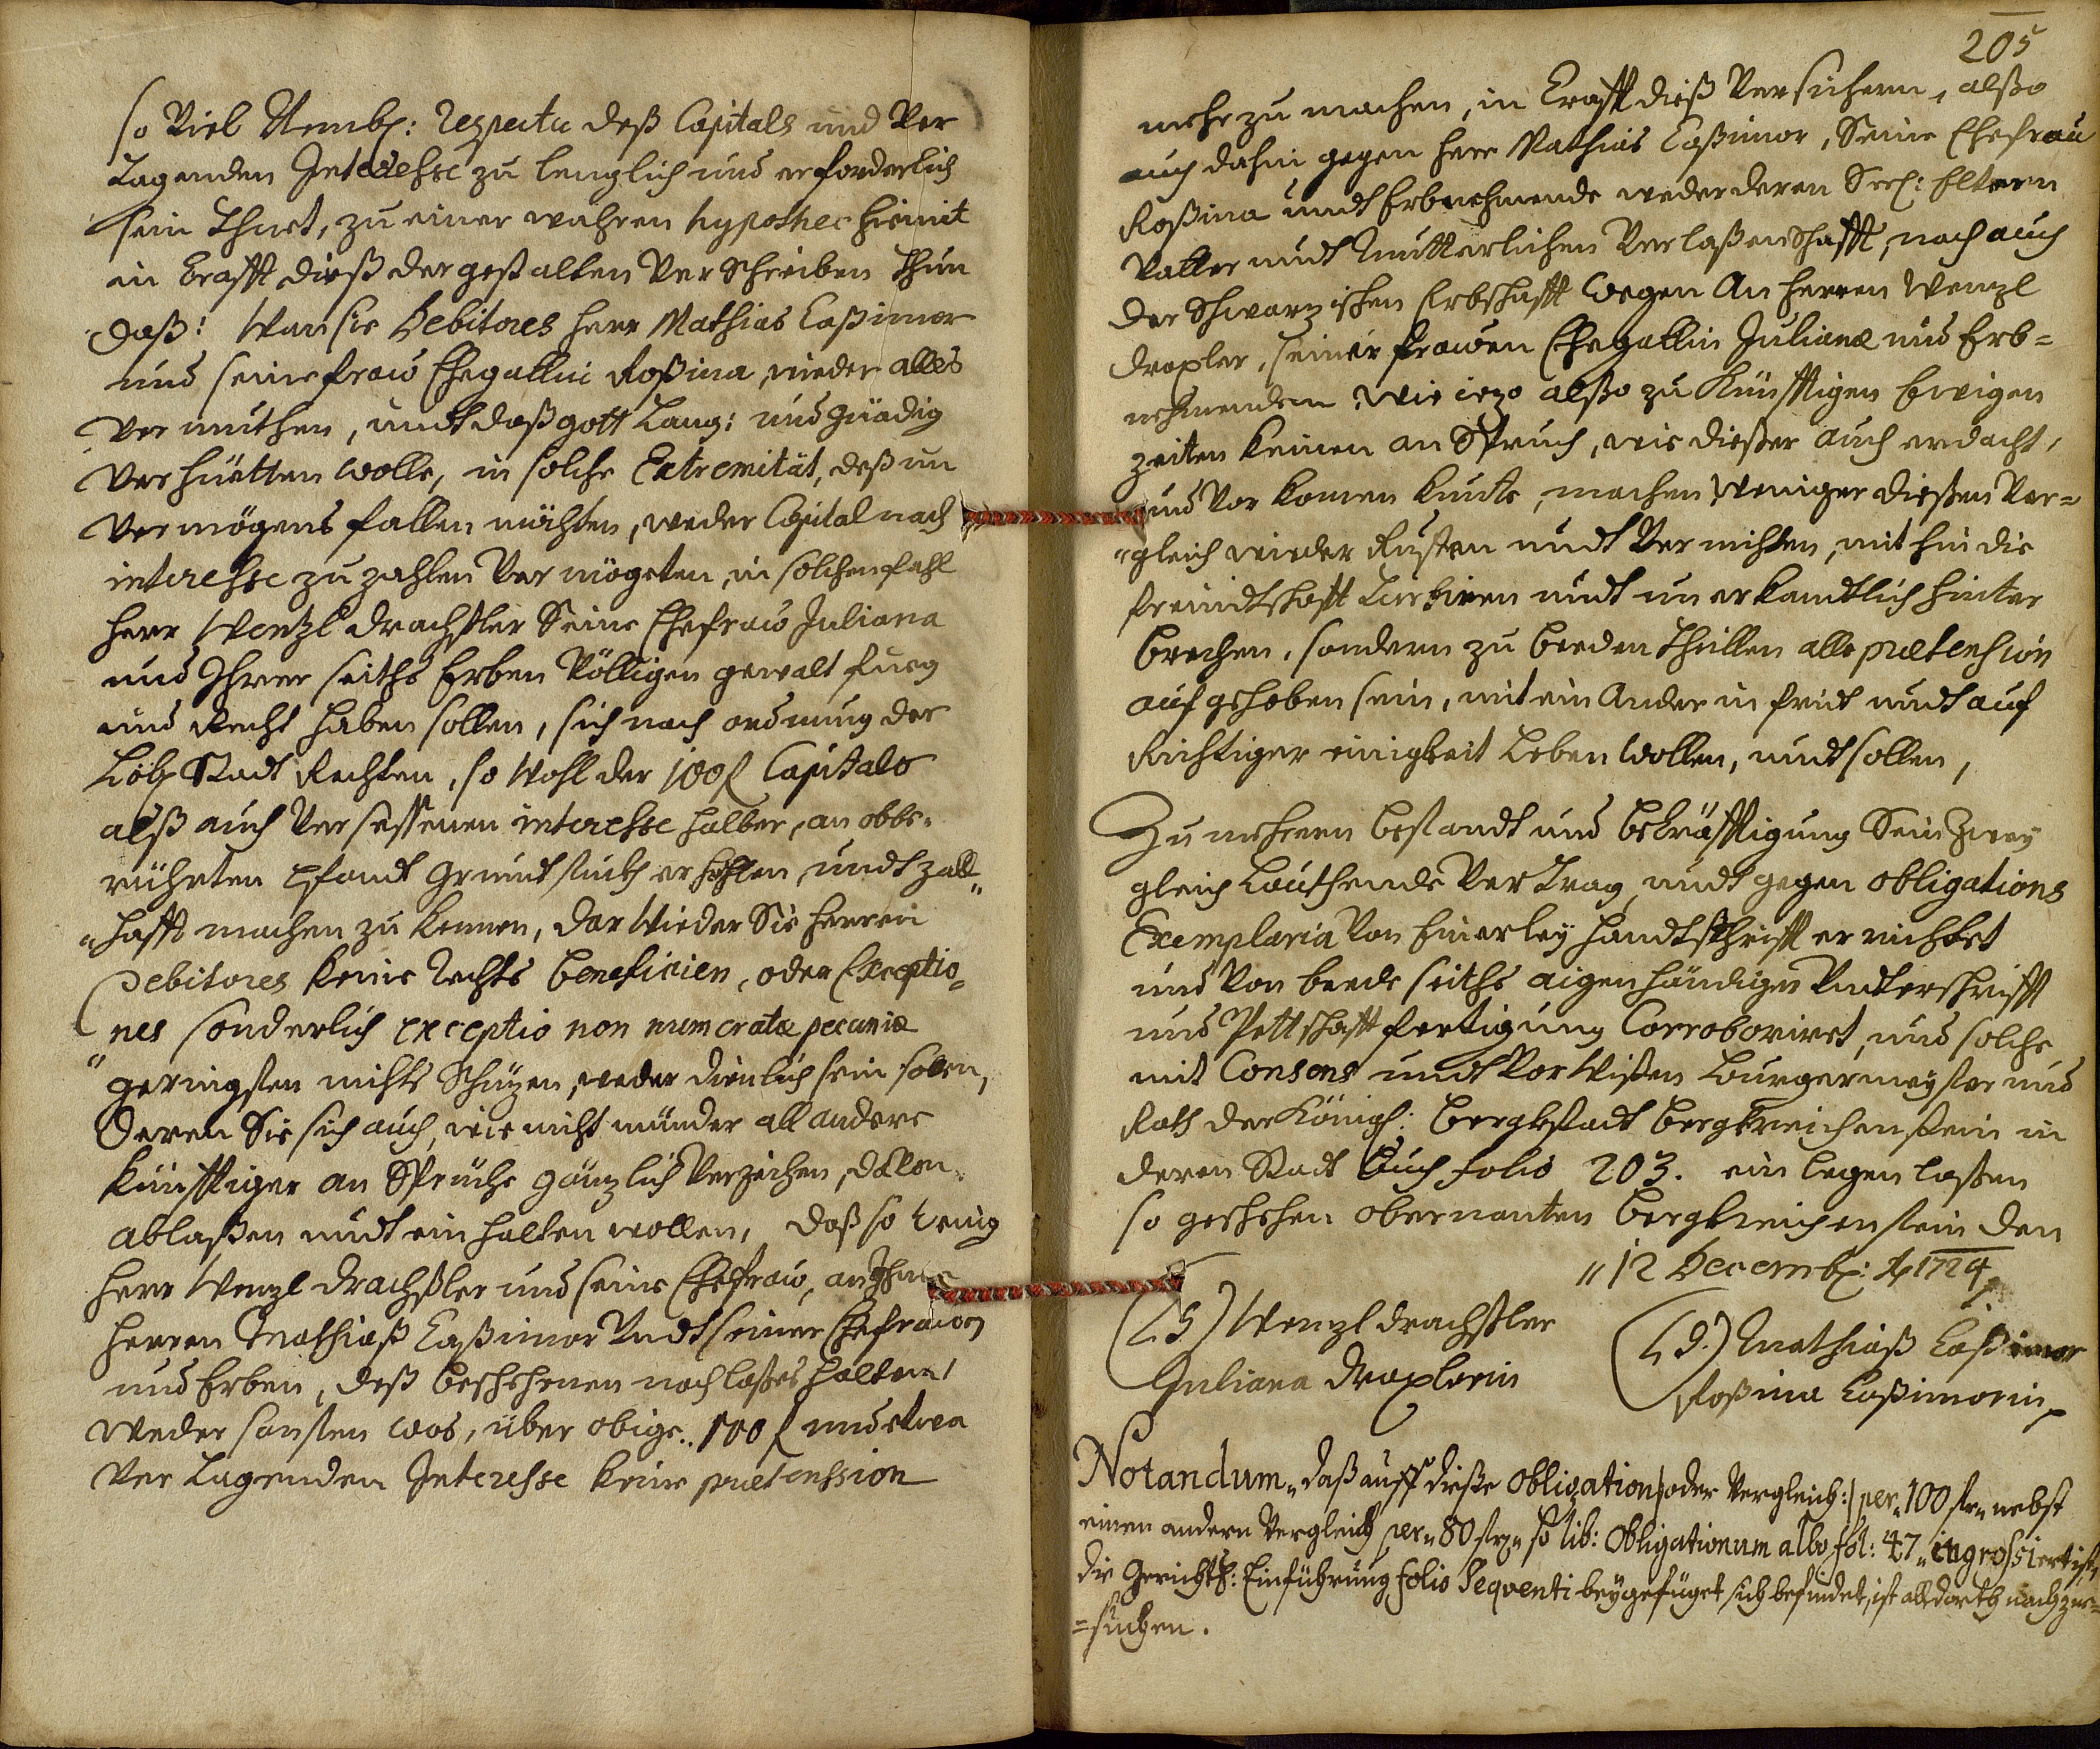 so Viel Nembl: respectu deß Capitals und Ver
Tagenden Interesse zu lenglich und erforderlich
sein Thuet, zu einer wahren hypothec hiemit
in Crafft dieß dergestalten Verschreiben Thun
daß: Wan sie Debitores Herr Mathias Caßimor
und seine fraw Ehegattin Roßina, wieder alles
Ver muthen, undt daß gott Lang: und gnädig
Verhüetten wolle, in solche Extremität, deß un
Vermögens fallen möchten, weder Capital noch
interesse zu zahlen Ver mögeten, in solchen fahl
Herr Wentzl Drachßler Seine Ehefraw Juliana
und Ihrer seiths Erben Völligen gewalt fueg
und Recht haben sollen, sich nach ordnung der
Löbl Stadt Rechten, so wohl der 100 f Capitals
alß auch Versessenen interesse halber, an obbe-
rührten Pfandt Grundt stuckh erhohlen, undt zall-
hafft machen zu kennen, dar wieder Sie Herren
Debitores keine Rechts beneficien, oder Exceptio-
nes sonderlich exceptio non numeratæ pecuniæ
geringsten nichts Schüzen, weder dienlich sein solen,
Deren Sie sich auch, wie nicht münder all andere
künfftiger an Sprüche gänzlich Verzeichen, davon
ablaßen undt ein halten wollen, daß so wenig
Herr Wenzl Drachßler und seine Ehefraw, an Ihme
Herren Mathiaß Caßimor Undt seiner Ehefrawen
und Erben, deß beschehenen nachlaßes halber,
weder sonsten was, über obige 100 f und etwa
Ver Tagenden Interesse keine prætenssion
205
mehr zu machen, in Crafft dieß Versichern, alßo
auch dahin gegen Herr Mathias Caßimor, Seine Ehefrau
Roßina undt Erbnehmende weder deren Seel: Eltern
Vatter undt Mutterlichen Verlaßenschafft, noch auch
der Schwarzischen Erbschafft wegen An Herren Wenzl
Draxler, seiner frawen Ehegattin Julianæ und Erb-
nehmenden, wie iezo alßo zu Künfftigen Ewigen
zeiten keinen an Spruch, wie dießer auch erdacht,
und Vor komen kunte, machen, weniger dießen Ver-
gleich wieder Rusten undt Vernichten, mit hin die
freindtschafft undt un erkandtlich hinter
brechen, sondern zu beeden Theillen alle prætension
auf gehoben sein, mit ein Ander in fridt undt auf
Richtiger einigkeit Leben wollen, undt sollen,
Zu mehreren bestandt und bekräfftigung Sein Zwey
gleich Lauthende Ver Trag, undt gegen obligations
Exemplaria Von Einerley Handtschrifft er richtet
und Von beede seiths aigenhändiger Unterschrifft
und Pettschafft fertigung Corroboriret, und solche
mit Consens undt Vorwißen Burgermeyster und
Rath der Königl: Bergkstadt Bergkreichenstein in
deren Stadt Buch folio 203. ein legen laßen
so geschehen obernanten Bergkreichenstein den
12 Decemb: Ao 1724
(L S) Wenzl Drachßler
Juliana Draxlerin
(L S.) Mathiaß Caßimor
Roßina Caßimorin
Notandum, daß auff dieße Obligation |: oder Vergleich :| per 100 fr nebst
einen andern Vergleich per 80 fr so lib: Obligationum albo fol: 47 ingrossiert ist,
die Gerichtl: Einführung folio Sequenti beygefüget sich befindet, ist alldorth nachzu-
suchen.